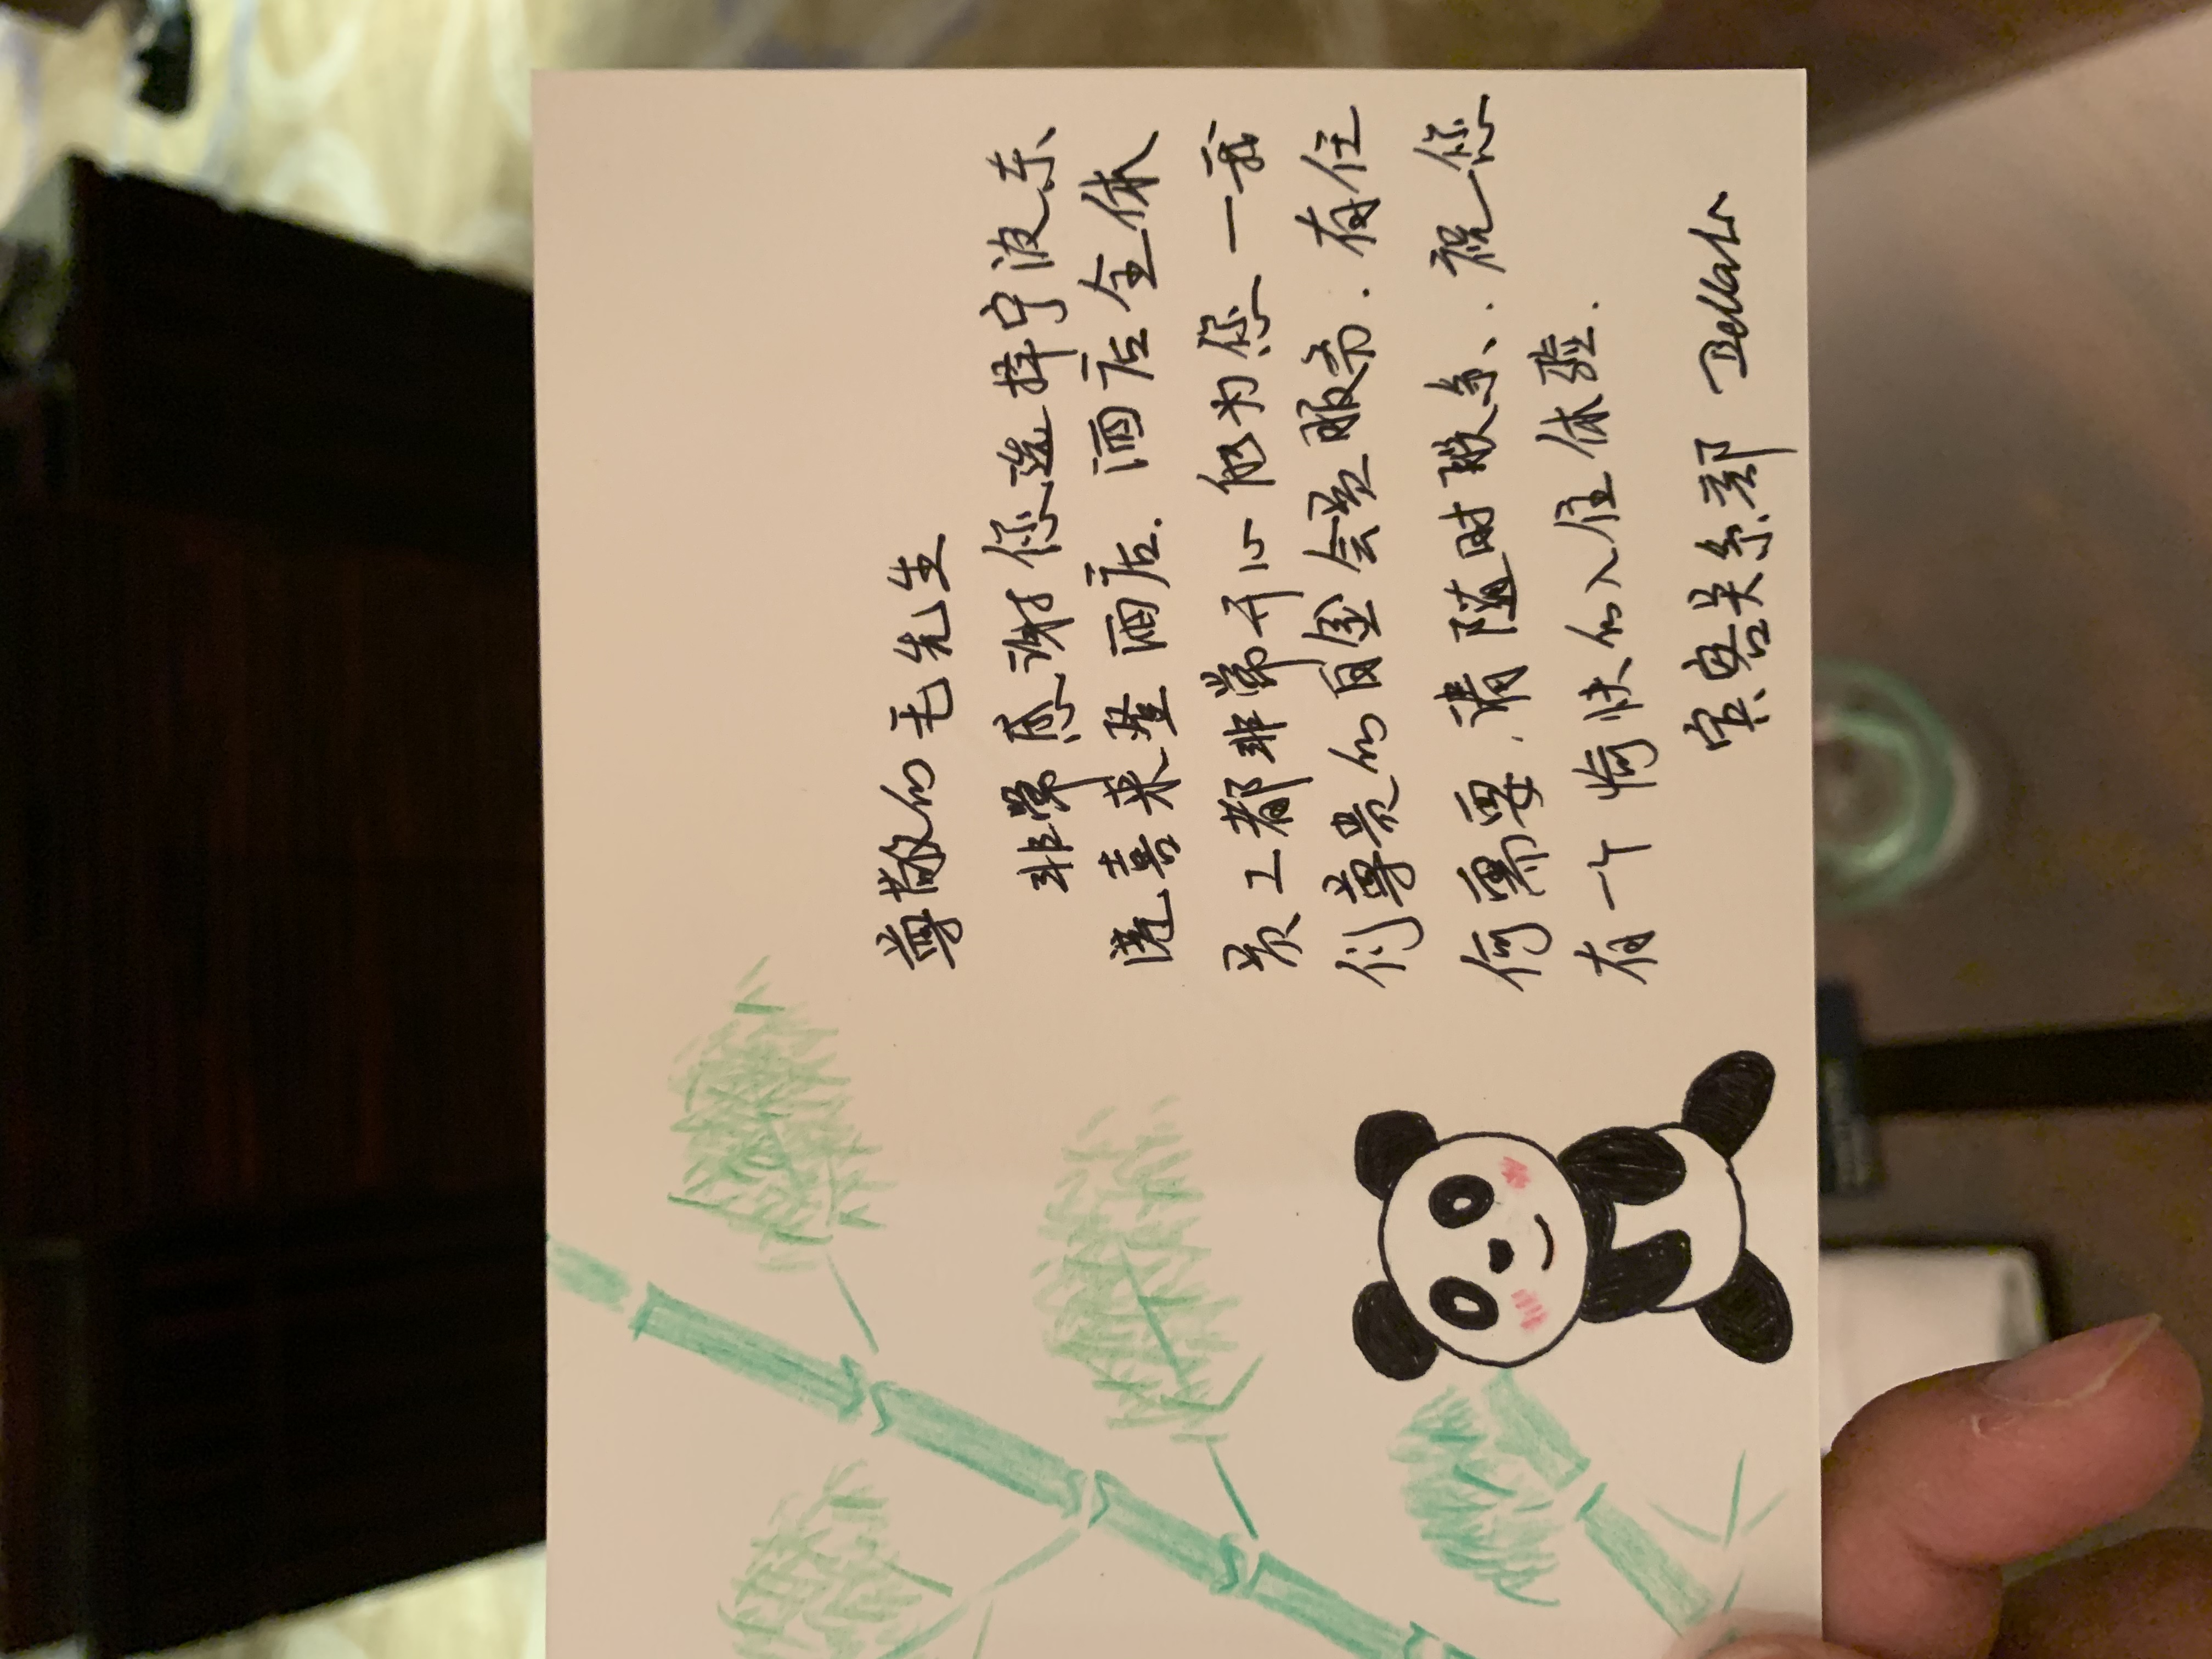 尊敬的毛先生
非常感谢您选择宁波东
港喜来登酒店.酒店全体
员工都非常开心能为您一我
们尊贵的白金会员服务.有任
何需要,请随时联系.祝您
有一个愉快的入住体验.
宾客关系部 Bella